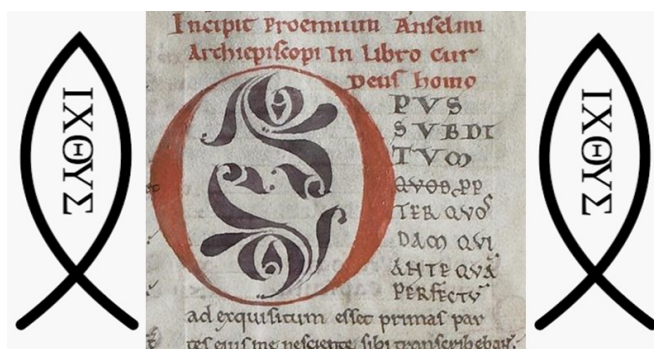 ΙΧΘΥΣ
Incipit Proemium Anselmi
Archiepiſcopi In Libro Cur
Deuſ homo
OPVS
SVBDI
TVM
QVOD PP
TER QVOſ
DAM QVI
ANTE QVĀ
PERFECTV
ad exquiſitum eſſet primaſ par
teſ eiuſ me neſciente ſibi tranſcribebant.
ΙΧΘΥΣ